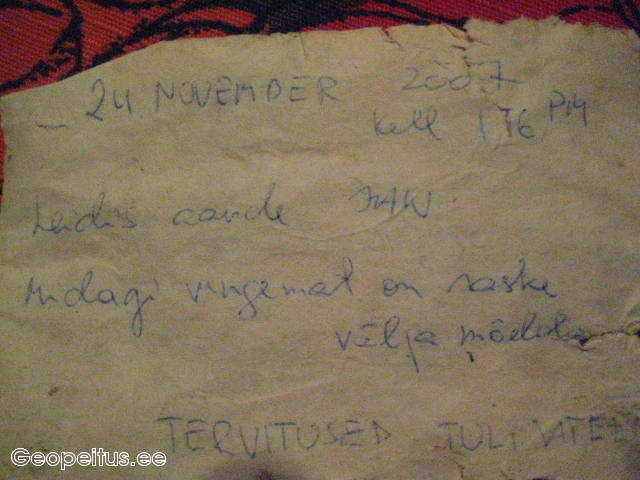 24 NOVEMBER 2007
kell 1 46 PM
Leidis aarde JAW
Midagi vingemat on raske
välja mõelda
TERVITUSED TULIVATEL
Geopeitus.ee